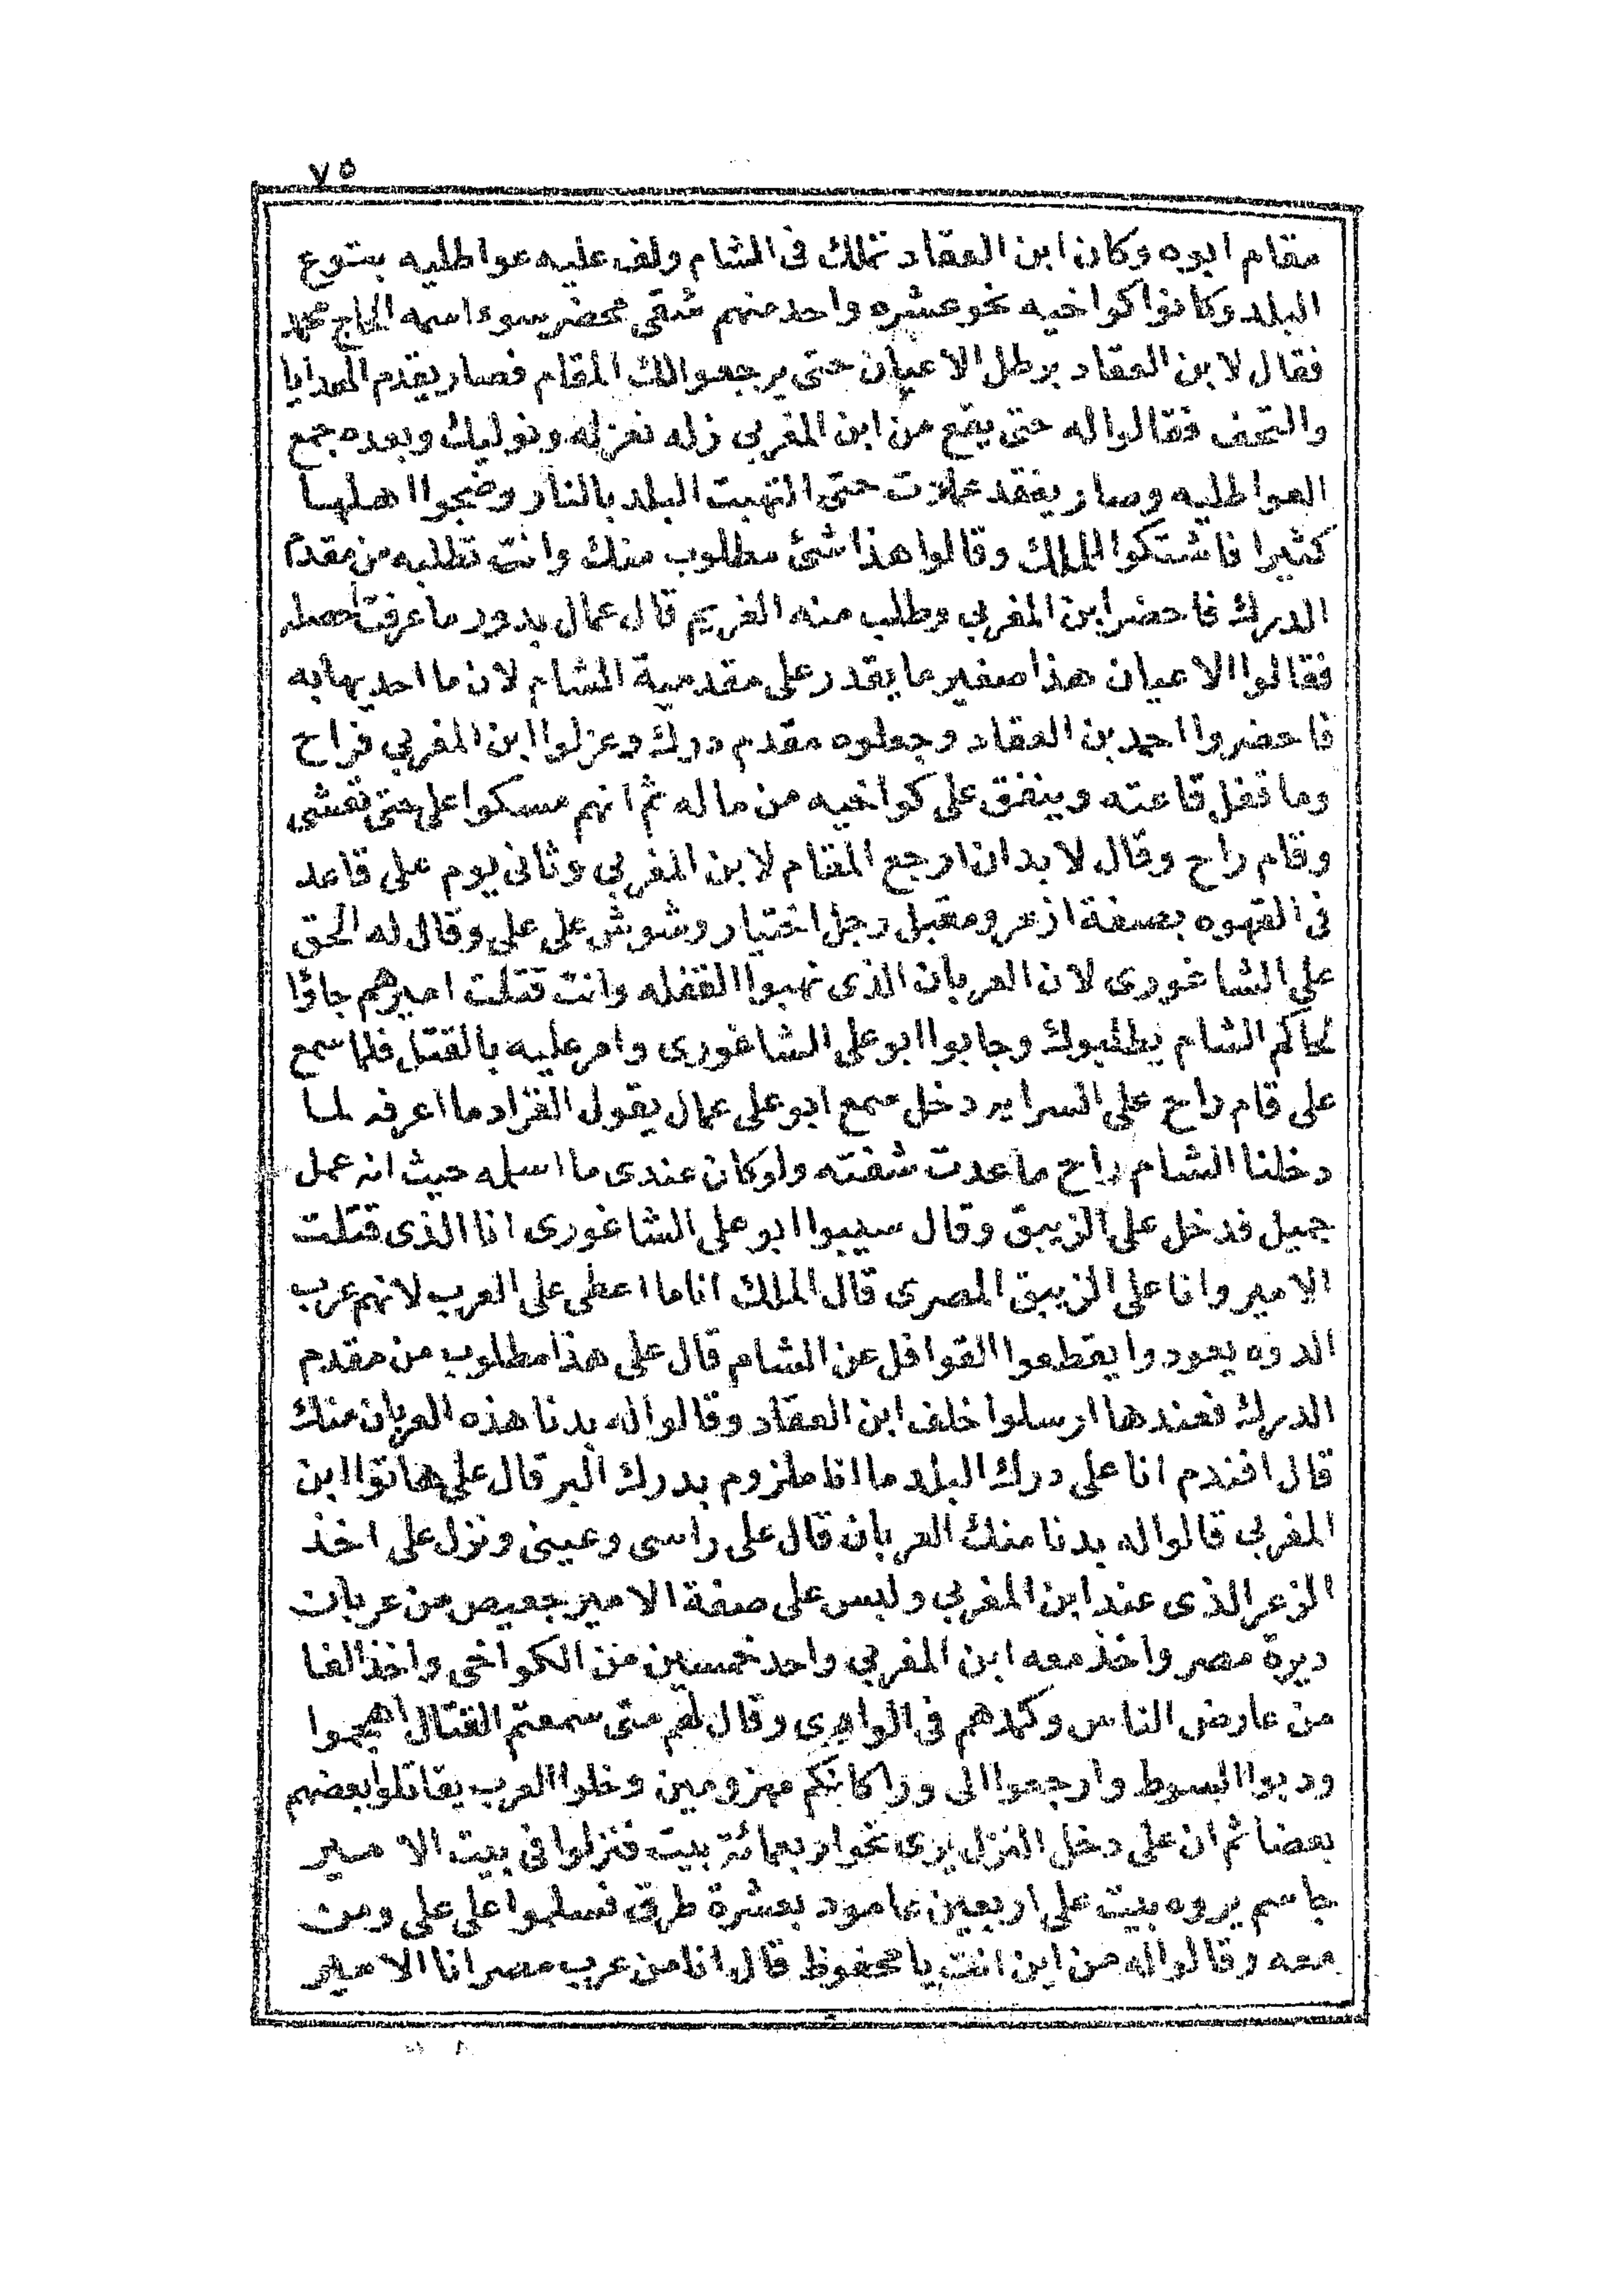 ٧٥
مقام ابوه وكان ابن العقاد تملك فى الشام ولف عليه عواطليه بتوع
البلد وكانوا كواخيه نحو عشره واحد منهم شقى محضر سوء اسمه الحاج محمد
فقال لابن العقاد برطل الاعيان حتى يرجعوا لك المقام فصار يقدم الهدايا
والتحف فقالوا له حتى يقع من ابن المغربى زله نعزله ونوليك وبعده جمع
العواطليه وصار يفقد محلات حتى التهبت البلد بالنار وضجوا اهلها
كثيرا فاشتكوا للملك وقالوا هذا شئ مطلوب منك وانت تطلبه من مقدم
الدرك فاحضر ابن المغربى وطلب منه الغريم قال عمال بدور ما عرفت اصله
فقالوا الاعيان هذا صغير ما يقدر على مقدمية الشام لان ما احد يهابه
فاحضروا احمد بن العقاد وجعلوه مقدم درك وعزلوا ابن المغربى فراح
وما قفل قاعته وينفق على كواخيه من ماله ثم انهم مسكوا على حتى تعشى
وقام راح وقال لابد ان ارجع المقام لابن المغربى وثانى يوم على قاعد
فى القهوه بصفة ازعر ومقبل رجل اختيار وشوش على على وقال له الحق
على الشاغورى لان العربان الذى نهبوا القفله وانت قتلت اميرهم جاؤا
لحاكم الشام يطلبوك وجابوا ابو على الشاغورى وامر عليه بالقتل فلما سمع
على قام راح على السرايه دخل سمع ابو على عمال يقول القراد ما اعرفه لما
دخلنا الشام راح ما عدت شفته ولو كان عندى ما اسلمه حيث انه عمل
جميل فدخل على الزيبق وقال سيبوا ابو على الشاغورى انا الذى قتلت
الامير وانا على الزيبق المصرى قال الملك انا ما اعطى على العرب لانهم عرب
الدوه يعودوا يقطعوا القوافل عن الشام قال على هذا مطلوب من مقدم
الدرك فعندها ارسلوا خلف ابن العقاد وقالوا له بدنا هذه العربان منك
قال افندم انا على درك البلد ما انا ملزوم بدرك البر قال على هاتوا ابن
المغربى قالوا له بدنا منك العربان قال على راسى وعينى ونزل على اخذ
الزعر الذى عند ابن المغربى ولبس على صفة الامير جعيص من عربان
ديرة مصر واخذ معه ابن المغربى واحد خمسين من الكواخى واخذ الفا
من عارض الناس وكمدهم فى الوادى وقال لهم متى سمعتم القتال اهجموا
ودبوا السوط وارجعوا الى ورا كانكم مهزومين وخلوا العرب يقاتلوا بعضهم
بعضا ثم ان على دخل النزل يرى نحو اربعمائة بيت فنزلوا فى بيت الامير
جاسم يروه بيت على اربعين عامود بعشرة طرق فسلموا على على ومن
معه وقالوا له من اين انت يا محفوظ قال انا من عرب مصر انا الامير